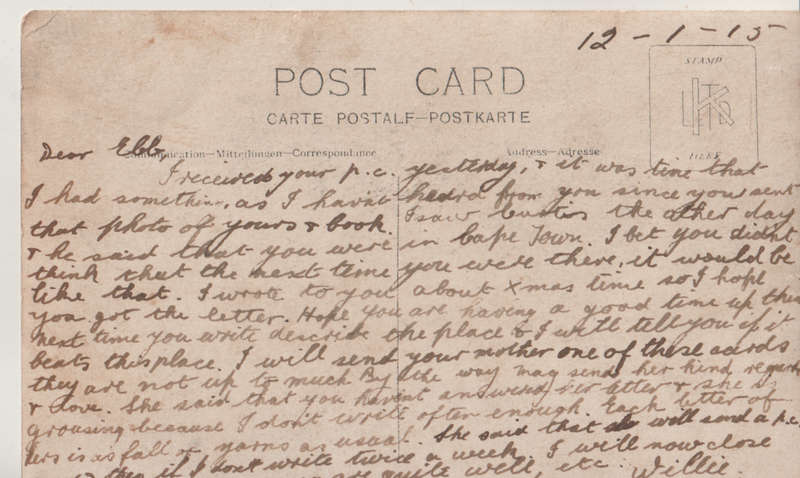 12-1-15
POST CARD
CARTE POSTALE—POSTKARTE
STAMP
HERE
Communication—Mitteilungen—Correspondance
Address—Adresse
Dear Ebb
I received your p.c. yesterday, & it was time that
I had something, as I havnt heard from you since you sent
that photo of yours & book. I saw the other day
& he said that you were in Cape Town. I bet you didnt
think that the next time you were there, it would be
like that. I wrote to you about Xmas time so I hope
you got the letter. Hope you are having a good time up there
next time you write describe the place & I will tell you if it
beats this place. I will send your mother one of these cards
they are not up to much By the way may sends her kind regards
& love. She said that you havent answered her letter & she is
grousing because I don't write often enough. Each letter of
hers is as full of yarns as usual. She said that she will send a p.c.
then if I dont write twice a week. I will now close
are quite well, etc. Willie.